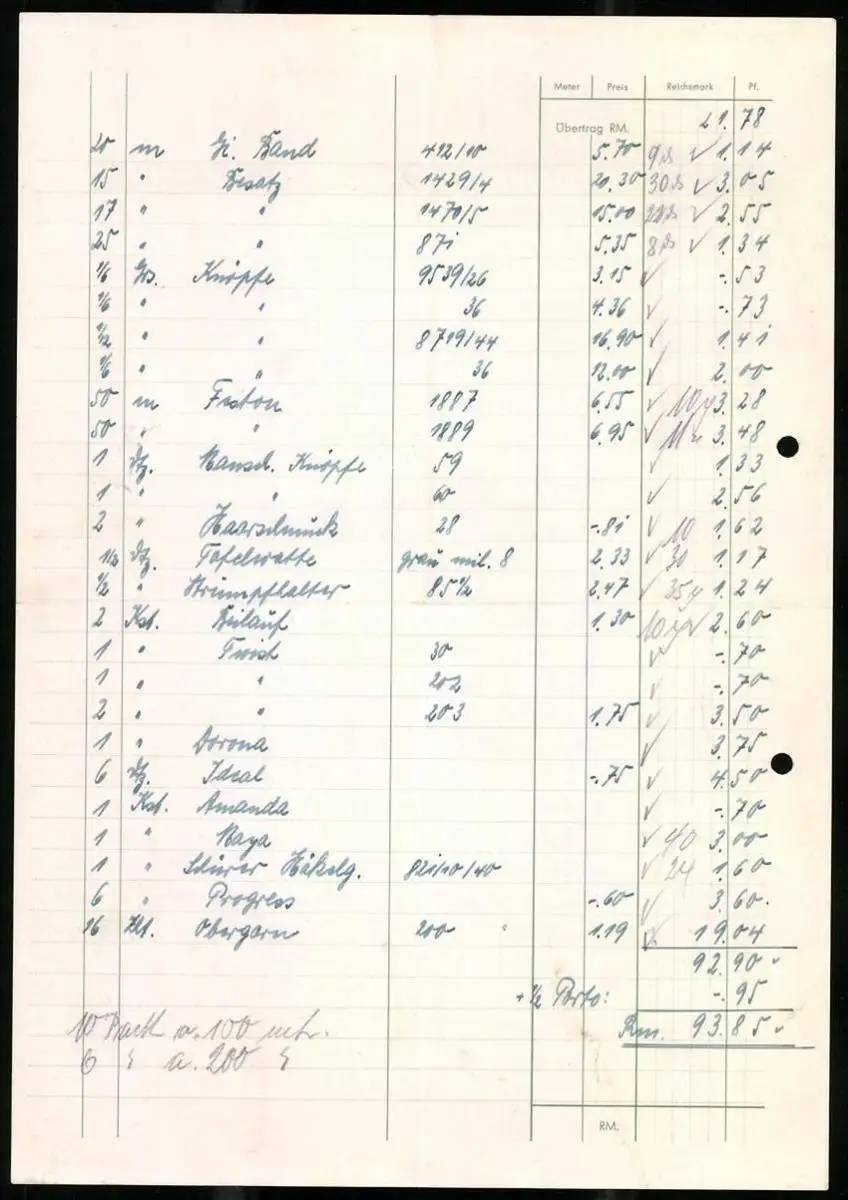 Meter Preis Reichsmark Pf.
Übertrag RM. 21.78
20 m Gi. Band 412/10 5.70 9 ✓ 1.14
15 " Besatz 1429/4 20.30 30 ✓ 3.05
17 " " 1470/5 15.00 ✓ 2.55
25 " " 871 5.35 8 ✓ 1.34
1/6 Grs. Knöpfe 9539/26 3.15 ✓ -.53
1/6 " " 36 4.36 ✓ -.73
1/12 " " 8719/44 16.90 ✓ 1.41
1/6 " " 36 12.00 ✓ 2.00
50 m Feston 1887 6.55 ✓ 10 3.28
50 " " 1889 6.95 ✓ 11 3.48
1 Dtz. Mansch. Knöpfe 59 ✓ 1.33
1 " " 60 ✓ 2.56
2 " Haarschmuck 28 -.81 ✓ 10 1.62
1/2 Dtz. Tafelwatte grau mil. 8 2.33 ✓ 30 1.17
1/2 " Strumpfhalter 85 1/2 2.47 ✓ 35 1.24
2 Kst. Beilauf 1.30 10 ✓ 2.60
1 " Twist 30 ✓ -.70
1 " " 202 ✓ -.70
2 " " 203 1.75 ✓ 3.50
1 " Dorona ✓ 3.75
6 Dtz. Ideal -.75 ✓ 4.50
1 Kst. Amanda ✓ -.70
1 " Maya ✓ 40 3.00
1 " Häkelg. 821/10/40 ✓ 24 1.60
6 " Progress -.60 ✓ 3.60
16 Obergarn 200 1.19 19.04
92.90
+ 1/2 Porto: -.95
Rm. 93.85
10 Pack a. 100 mtr.
6 " a. 200 "
RM.